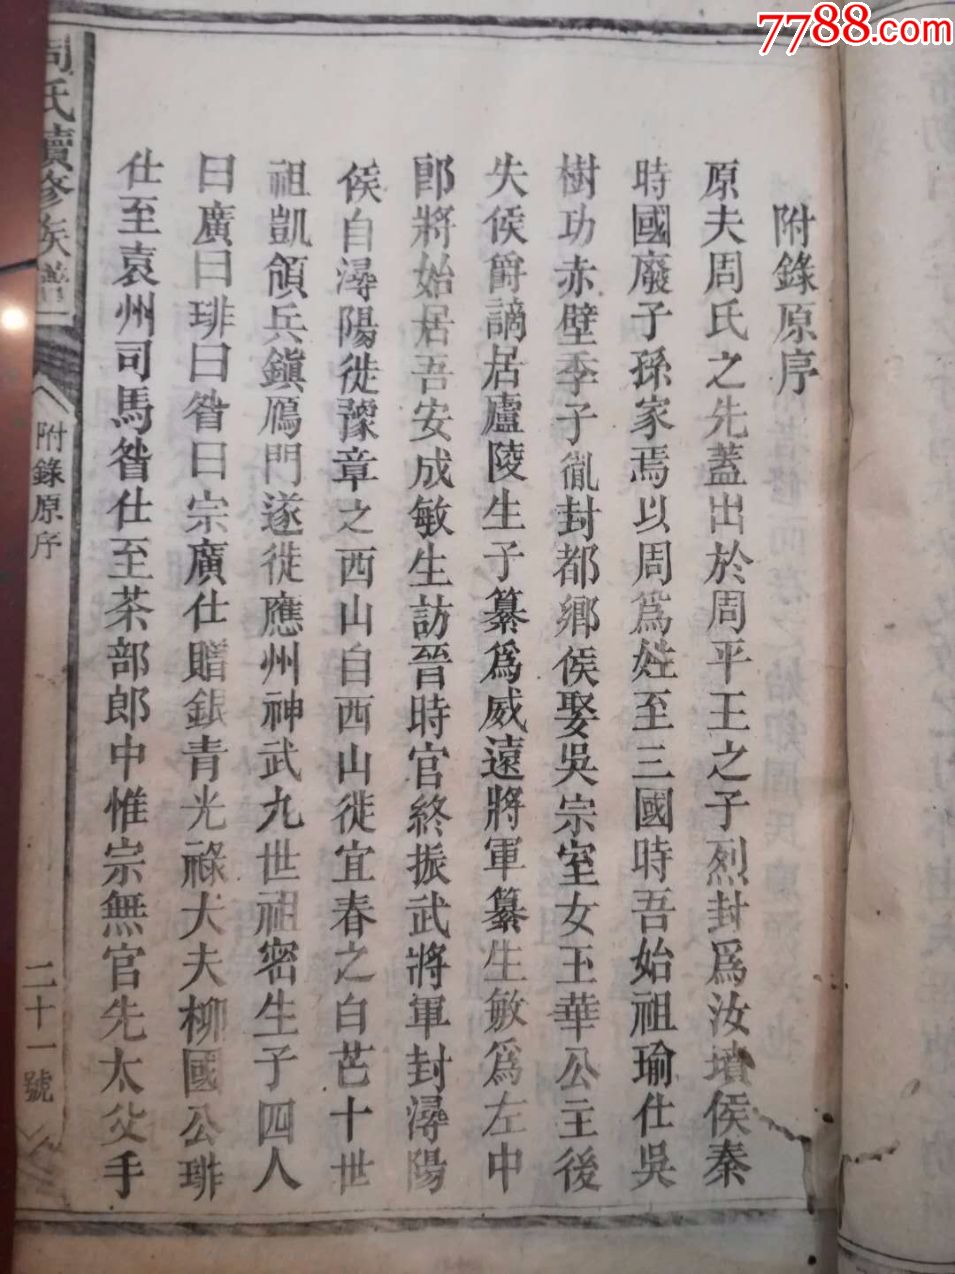 7788.com
附錄原序
原夫周氏之先蓋出於周平王之子烈封爲汝墳侯秦
時國廢子孫家焉以周爲姓至三國時吾始祖瑜仕吳
樹功赤壁季子胤封都鄉侯娶吳宗室女玉華公主後
失侯爵謫居廬陵生子纂爲威遠將軍纂生敏爲左中
郎將始居吾安成敏生訪晉時官終振武將軍封潯陽
侯自潯陽徙豫章之西山自西山徙宜春之白芒十世
祖凱領兵鎭鴈門遂徙應州神武九世祖密生子四人
曰廣曰琲曰䇓曰宗廣仕贈銀青光祿大夫柳國公琲
仕至袁州司馬䇓仕至茶部郎中惟宗無官先太父手
周氏續修族譜
附錄原序
二十一號